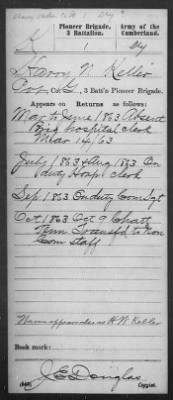 Pioneer Brigade,
3 Battalion.
Army of the
Cumberland.
K 1 Ky
Harry N. Keller
Cor, Co. G, 3 Batt'n Pioneer Brigade.
Appears on Returns as follows:
May to June 1863 Absent
Brig hospital clerk
Mar 14/63
July 1863 & Aug 1863 On
duty Hosp. Clerk
Sep 1863 On duty Com Sgt
Oct 1863 Oct 9 Chatt
Tenn Transf'd to Non
Com staff
Name appears also as H. W. Keller
Book mark:
J. E. Douglas
Copyist.